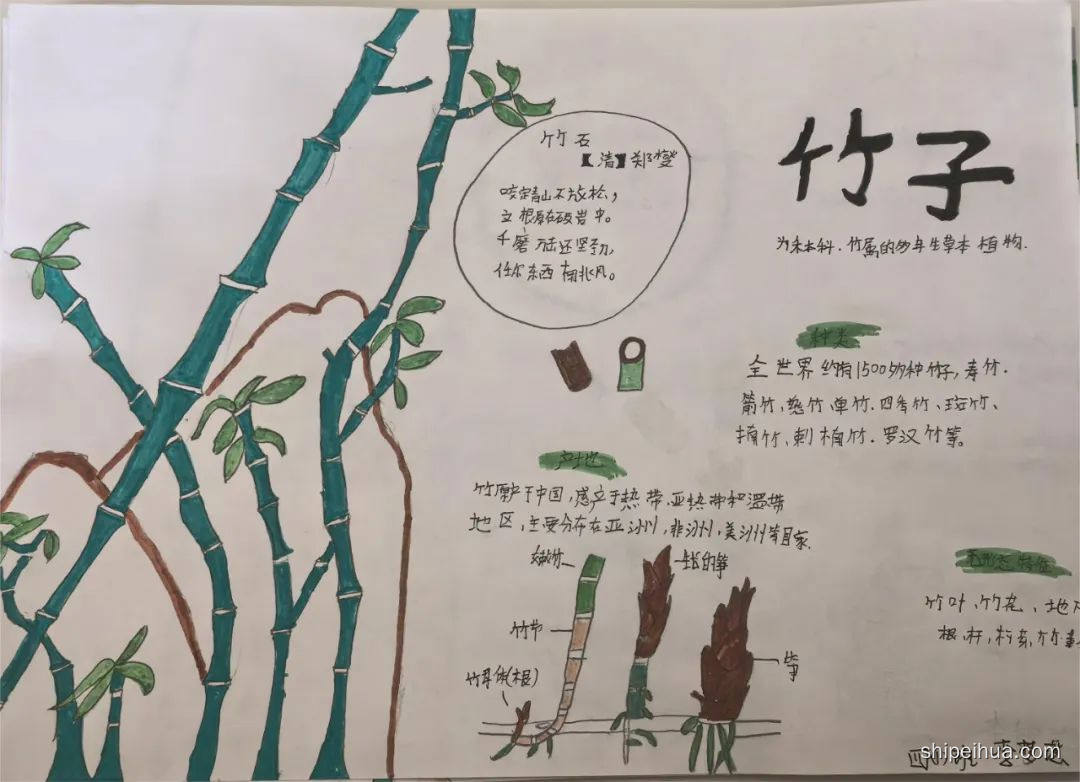 竹石
【清】郑燮
咬定青山不放松，
立根原在破岩中。
千磨万击还坚劲，
任尔东西南北风。
竹子
为禾本科.竹属的多年生草本植物.
种类
全世界约有1500多种竹子,寿竹.
箭竹、慈竹、单竹.四季竹、斑竹、
楠竹、刺楠竹.罗汉竹等。
产地
竹原产于中国,盛产于热带.亚热带和温带
地区,主要分布在亚洲,非洲,美洲等国家.
嫩竹
生长的笋
竹节
笋
竹耳朵(根)
形态特征
竹叶、竹花、地
根、杆,
shipeihua.com